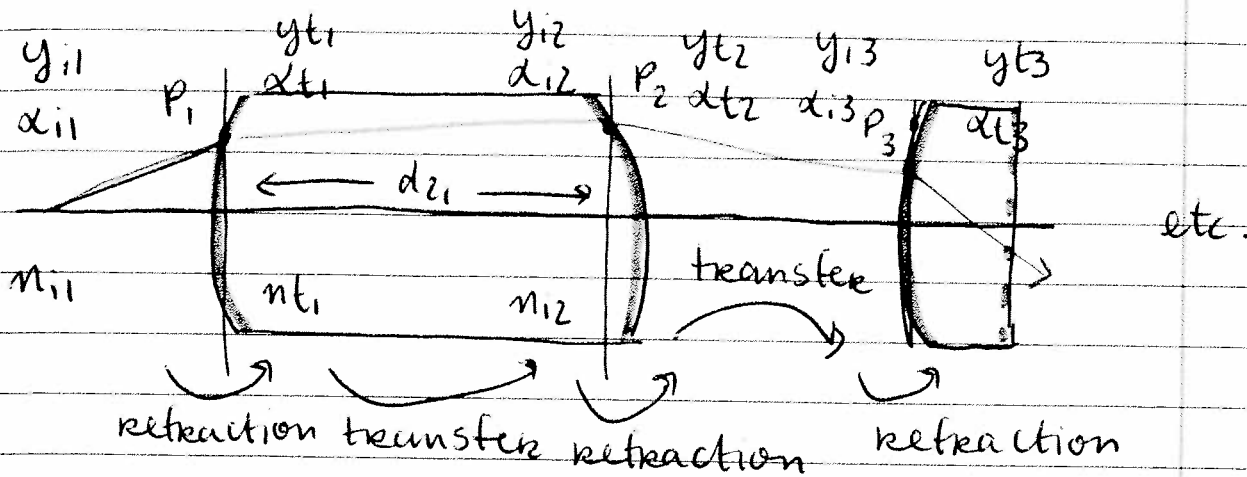 yi1 yt1 yi2 yt2 yi3 yt3
αi1 P1 αt1 αi2 P2 αt2 αi3 P3 αt3
d21
etc.
ni1 nt1 ni2 transfer
refraction transfer refraction refraction